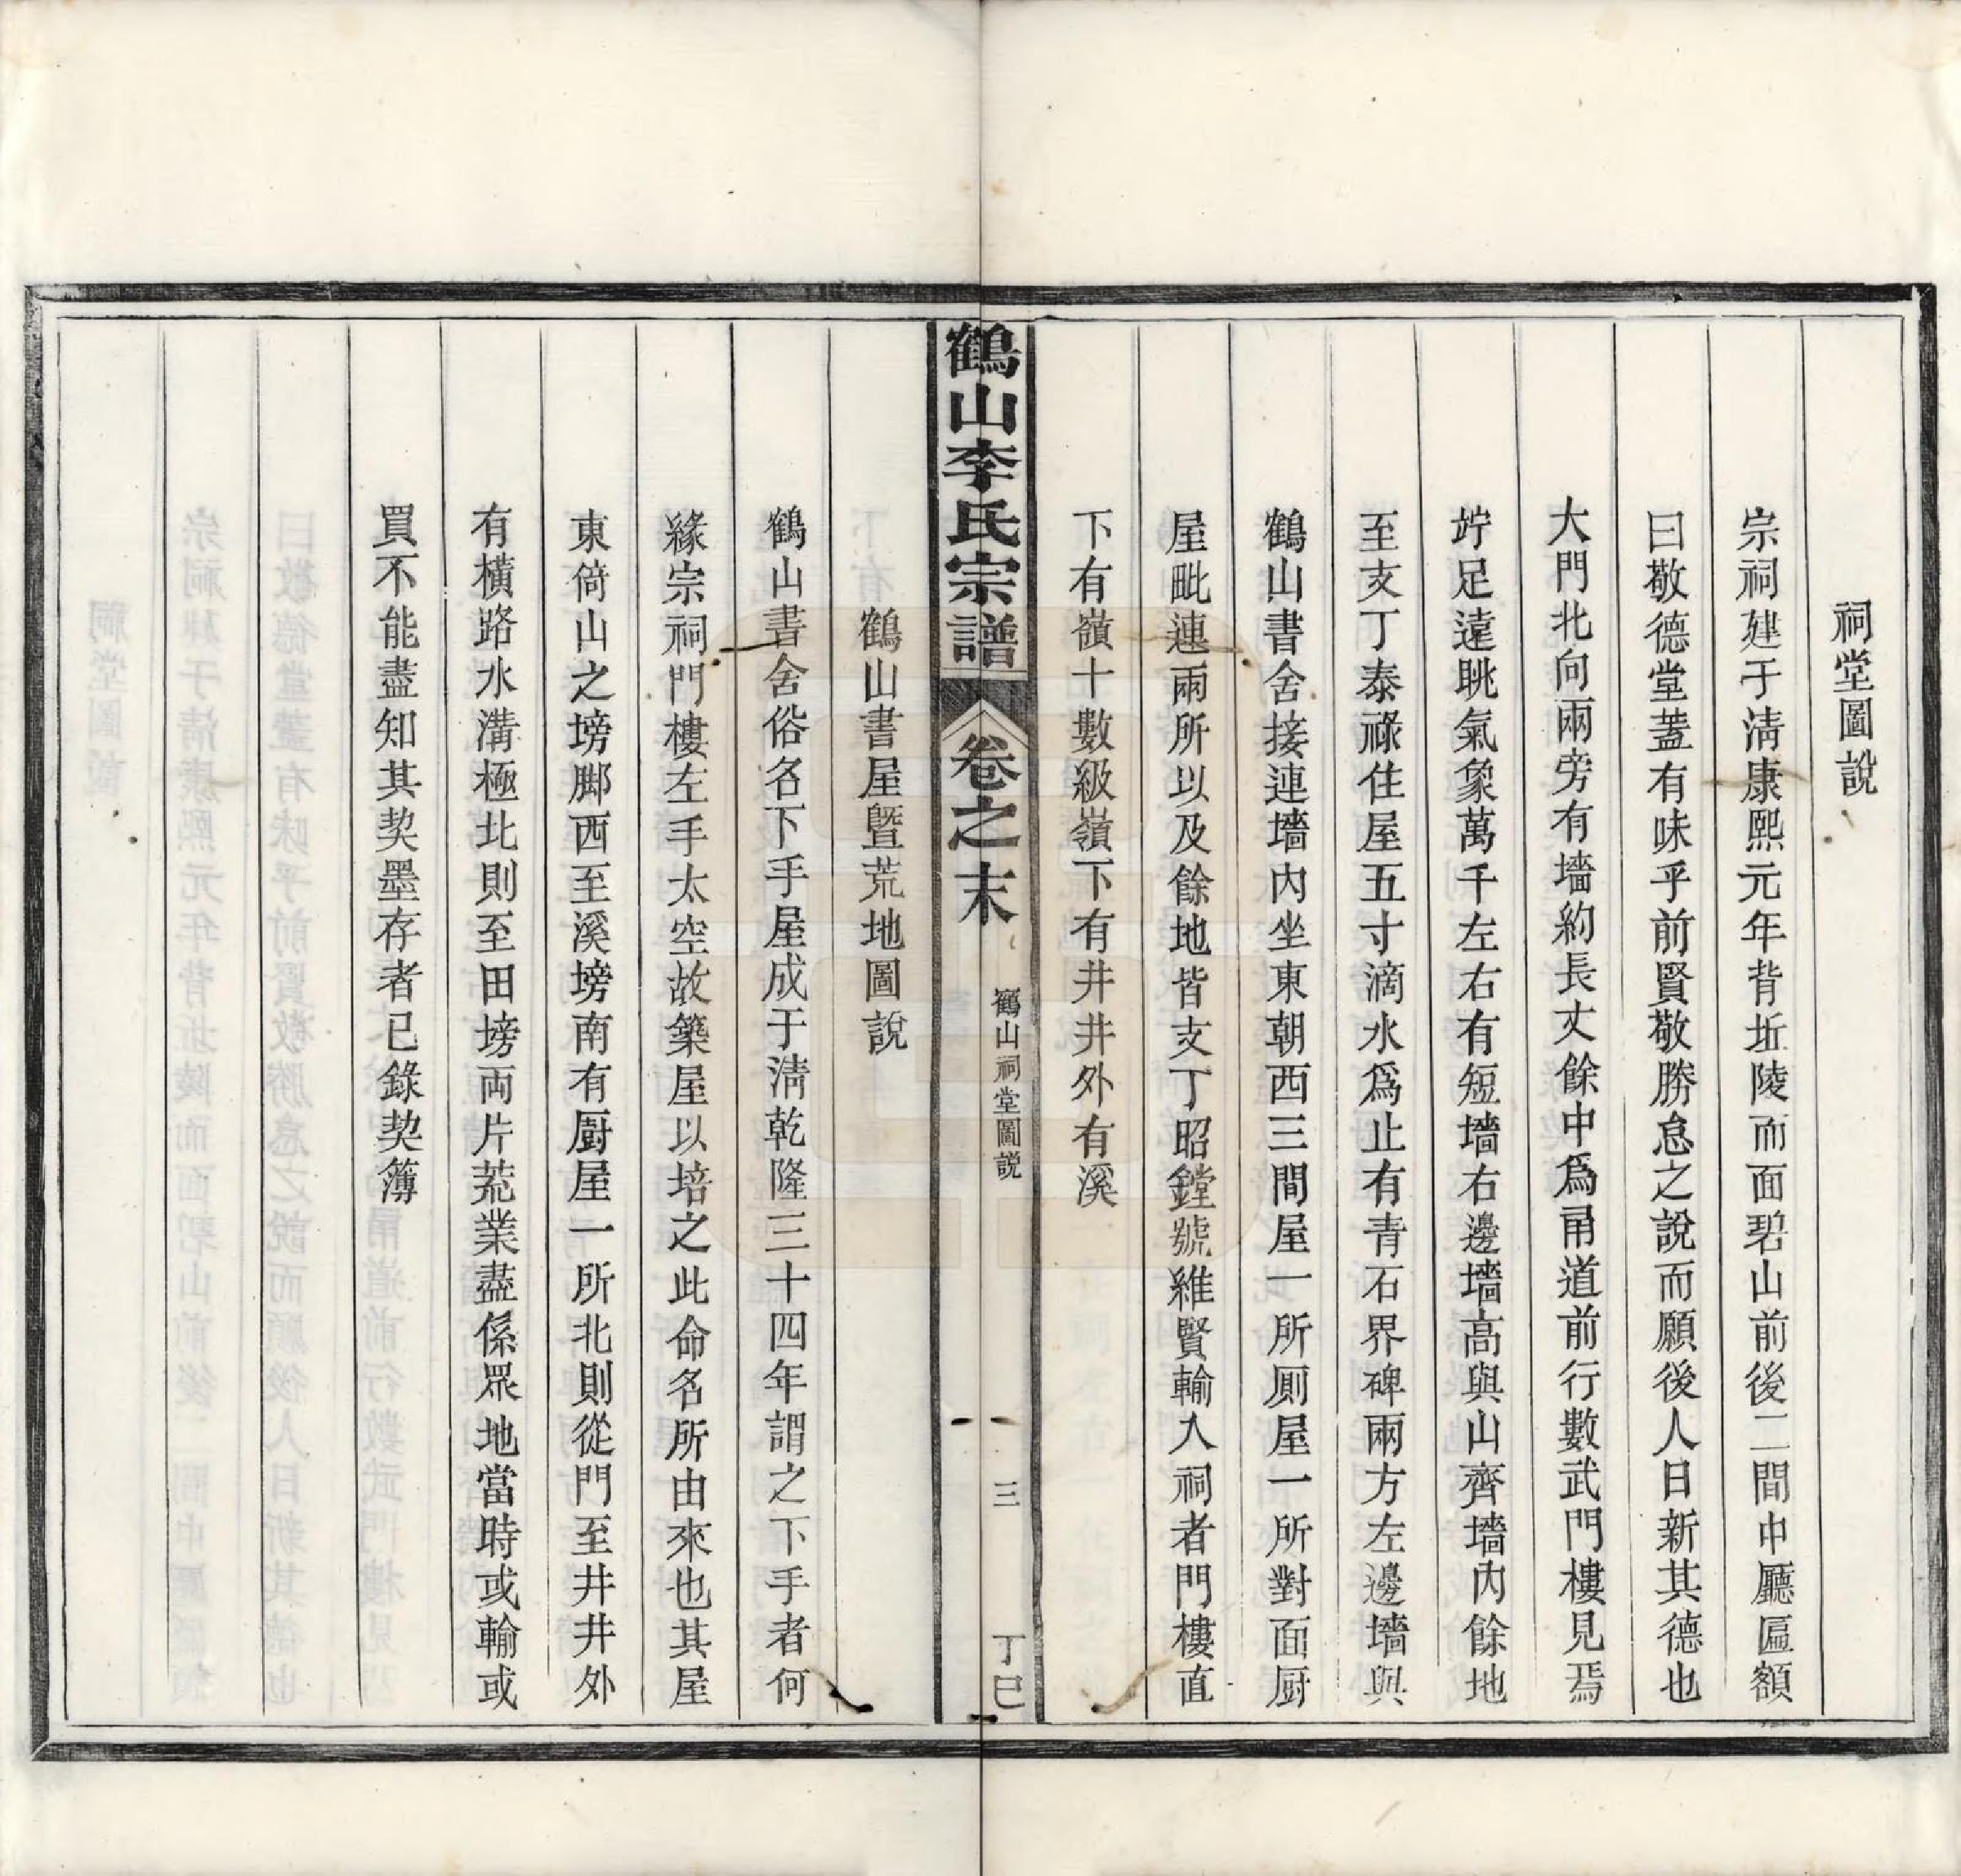 祠堂圖說
宗祠建于淸康熙元年背坵陵而面碧山前後二間中廳匾額
曰敬德堂蓋有味乎前賢敬勝怠之說而願後人日新其德也
大門北向兩旁有墻約長丈餘中爲甬道前行數武門樓見焉
竚足遠眺氣象萬千左右有短墻右邊墻高與山齊墻內餘地
至支丁泰祿住屋五寸滴水爲止有青石界碑兩方左邊墻與
鶴山書舍接連墻內坐東朝西三間屋一所厠屋一所對面厨
屋毗連兩所以及餘地皆支丁昭鏜號維賢輸入祠者門樓直
下有嶺十數級嶺下有井井外有溪
鶴山李氏宗譜
卷之末
鶴山祠堂圖說
三
丁巳
鶴山書屋暨荒地圖說
鶴山書舍俗名下手屋成于淸乾隆三十四年謂之下手者何
緣宗祠門樓左手太空故築屋以培之此命名所由來也其屋
東倚山之塝脚西至溪塝南有厨屋一所北則從門至井井外
有橫路水溝極北則至田塝両片荒業盡係眾地當時或輸或
買不能盡知其契墨存者已錄契簿